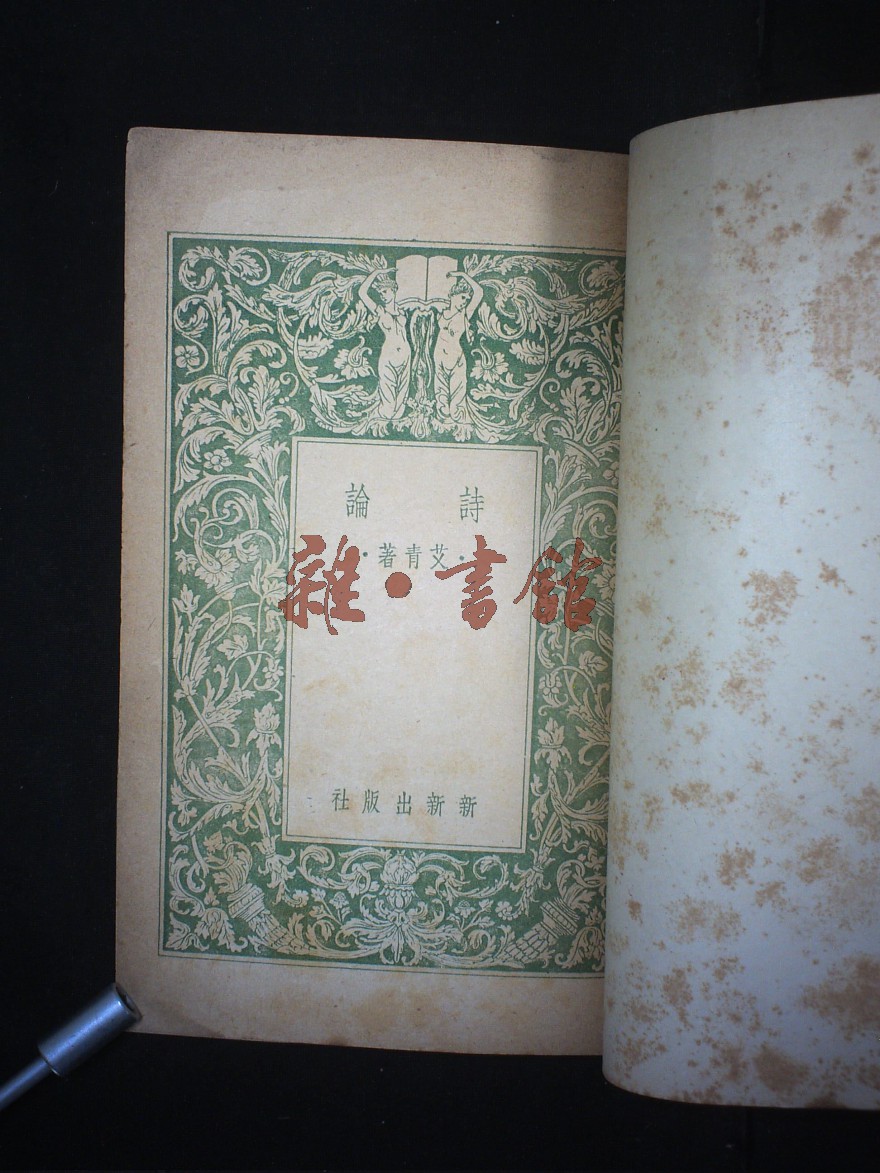 詩論
·艾青著·
雜·書館
新新出版社